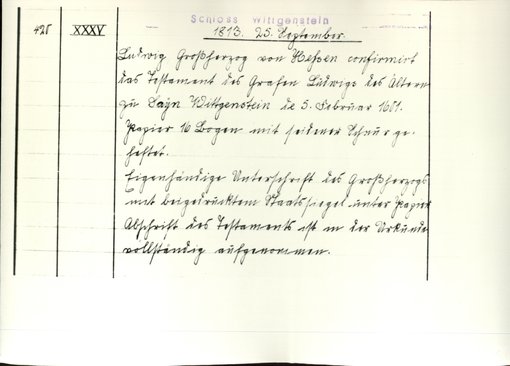 Schloss Wittgenstein
425 XXXV 1813. 25. September.
Ludwig Großherzog von Hessen confirmirt
das Testament des Grafen Ludwigs des Altern
zu Sayn Wittgenstein de 5. Februar 1601.
Papier 16 Bogen mit seidener Schnur ge-
heftet.
Eigenhändige Unterschrift des Großherzogs
mit beigedrucktem Staatssiegel unter Papier
Abschrift des Testaments ist in der Urkunde
vollständig aufgenommen.